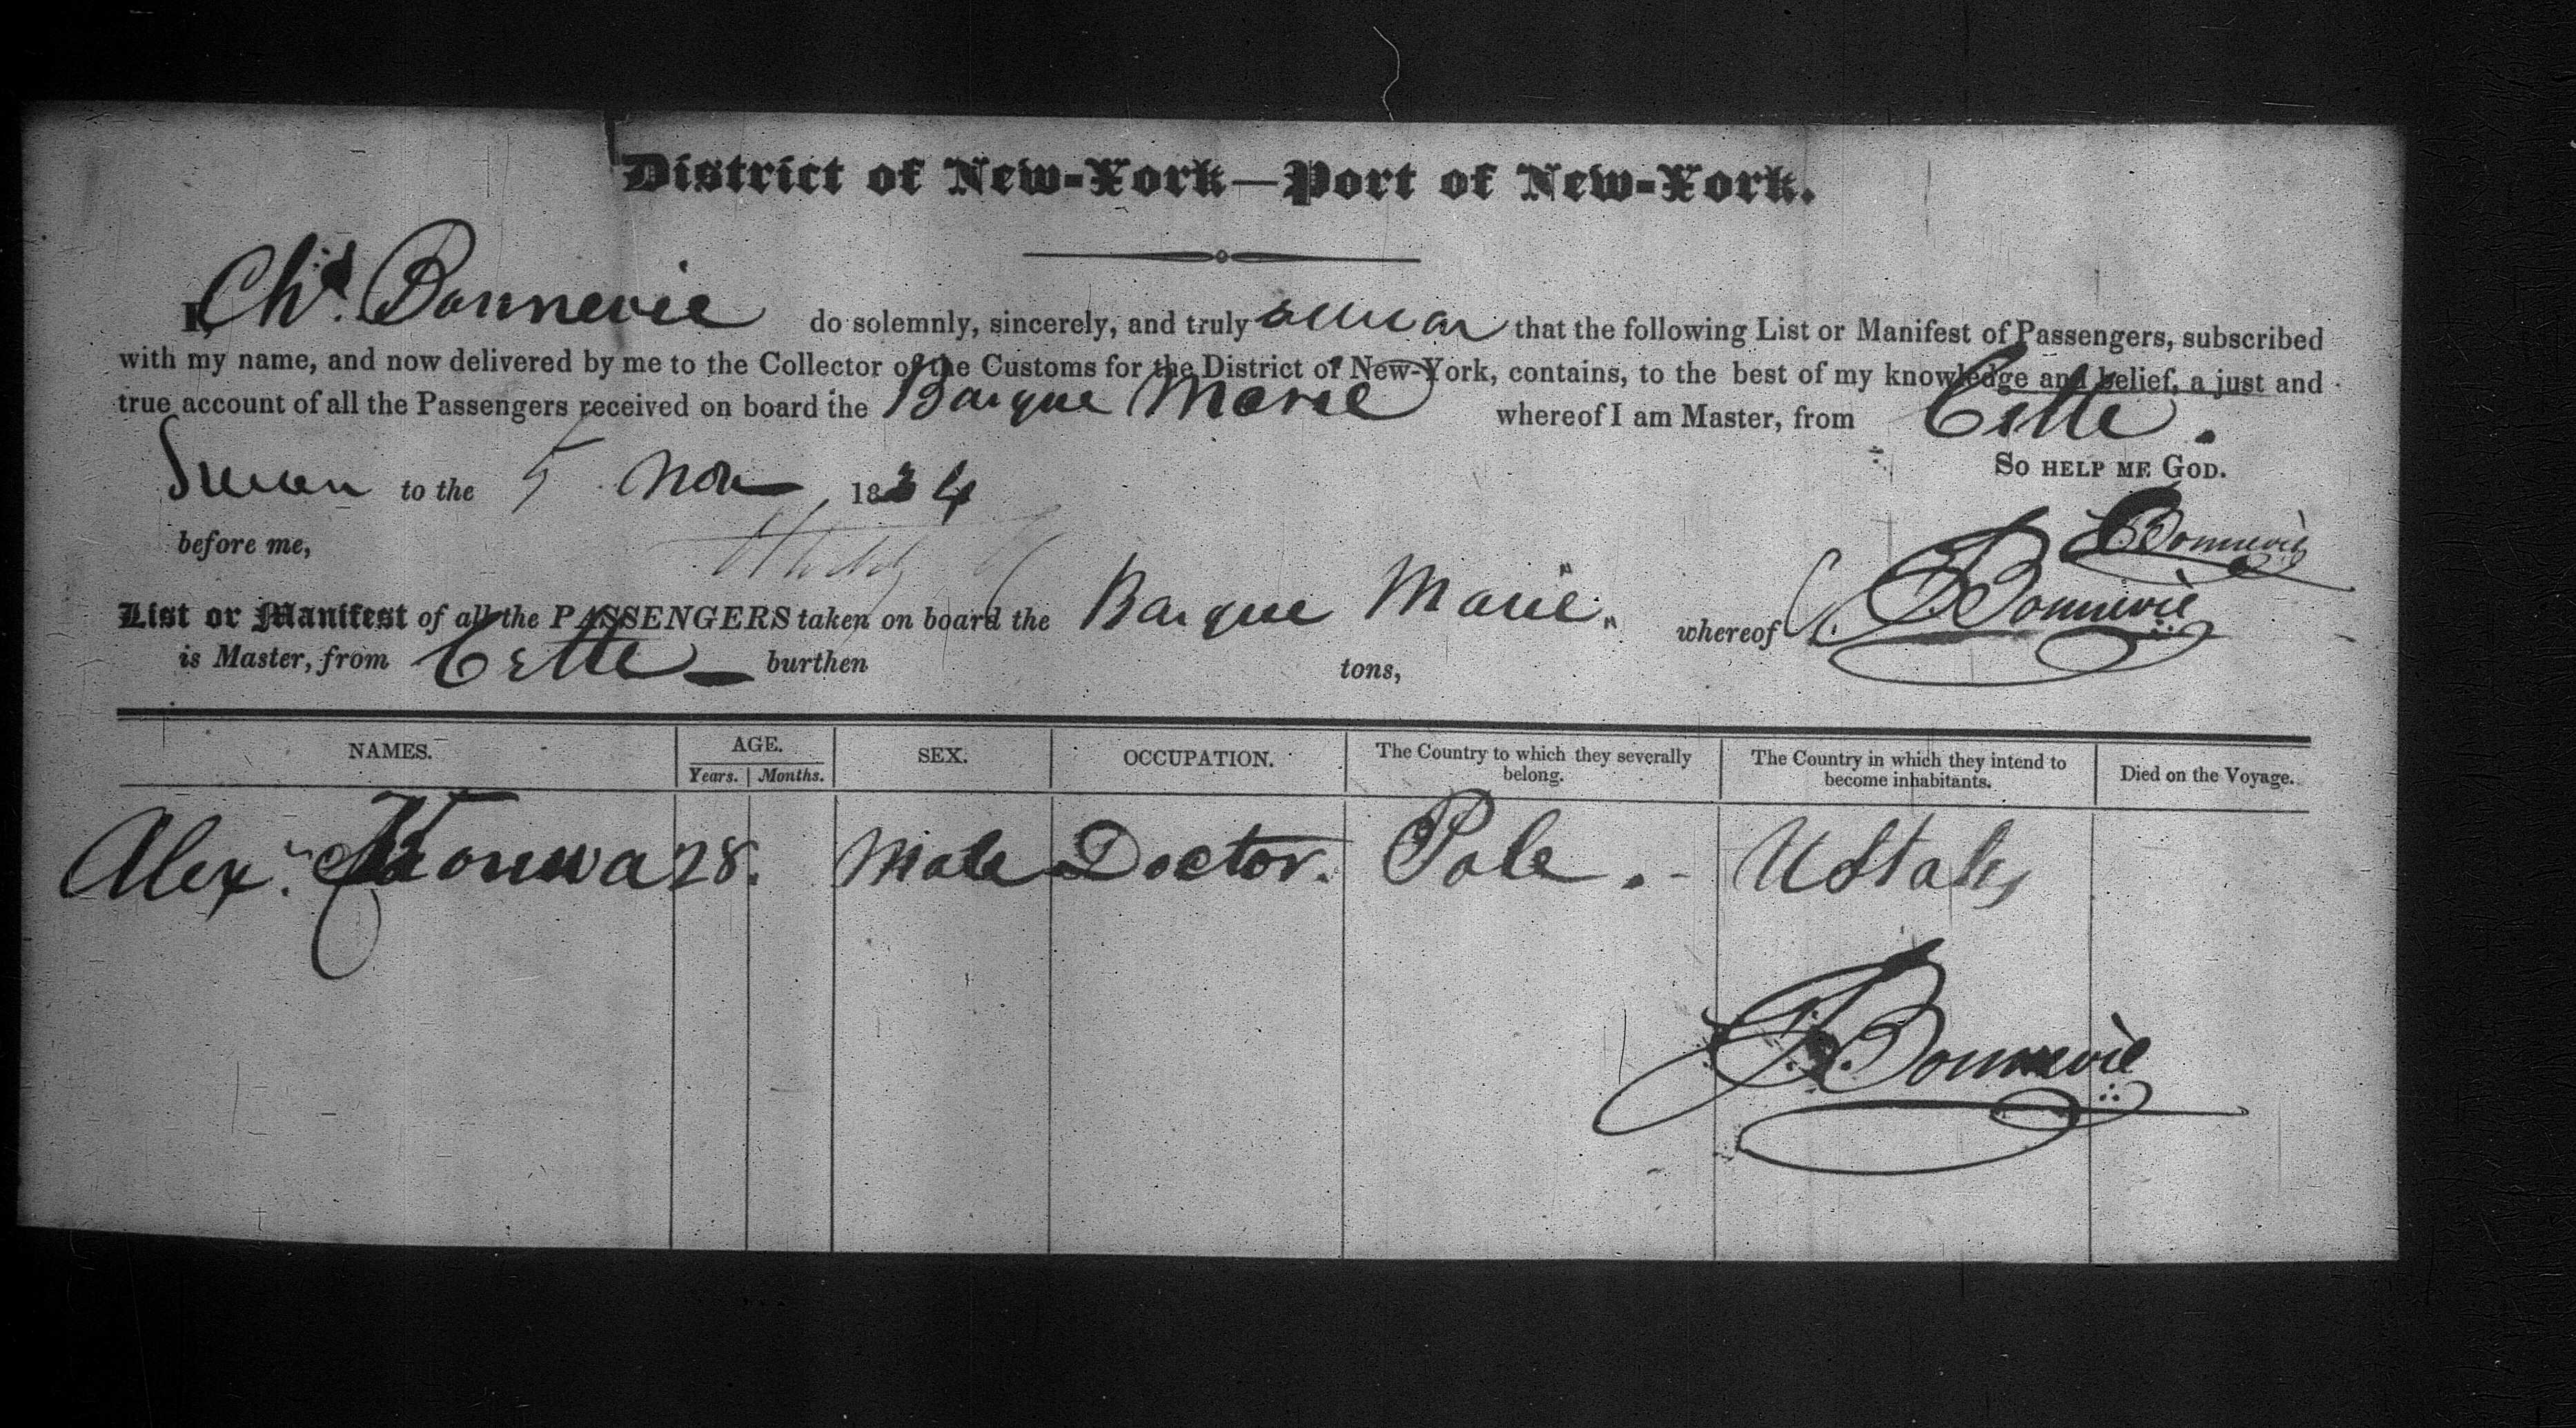 District of New-York—Port of New-York.
I, Ch.s Bonnevie do solemnly, sincerely, and truly swear that the following List or Manifest of Passengers, subscribed
with my name, and now delivered by me to the Collector of the Customs for the District of New-York, contains, to the best of my knowledge and belief, a just and
true account of all the Passengers received on board the Barque Marie whereof I am Master, from Cette.
So help me God.
Sworn to the 5 Nov 1834
Bonnevie
before me,
List or Manifest of all the PASSENGERS taken on board the Barque Marie. whereof Bonnevie
is Master, from Cette burthen tons,
NAMES. AGE. SEX. OCCUPATION. The Country to which they severally belong. The Country in which they intend to become inhabitants. Died on the Voyage.
Years. Months.
Alex. 28. Male Doctor. Pole. UStates
Bonnevie